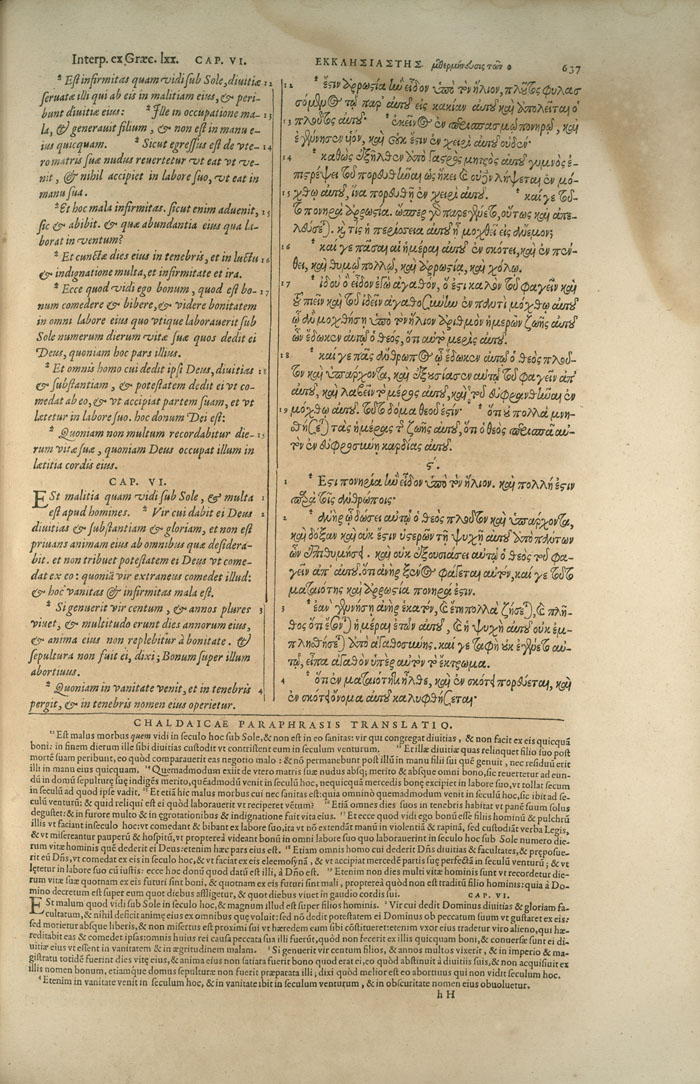 Interp. ex Græc. lxx. CAP. VI.
ΕΚΚΛΗΣΙΑΣΤΗΣ μεθερμήνευσις τῶν ο
637
Est infirmitas quam vidi sub Sole, diuitiæ 12
seruatæ illi qui ab eis in malitiam eius, & peri-
bunt diuitiæ eius: Ille in occupatione ma- 13
la, & generauit filium, & non est in manu e-
ius quicquam. Sicut egressus est de vte- 14
ro matris suæ nudus reuertetur vt eat vt ve-
nit, & nihil accipiet in labore suo, vt eat in
manu sua.
Et hoc mala infirmitas. sicut enim aduenit, 15
sic & abibit. & quæ abundantia eius qua la-
borat in ventum?
Et cunctæ dies eius in tenebris, et in luctu 16
& indignatione multa, et infirmitate et ira.
Ecce quod vidi ego bonum, quod est bo- 17
num comedere & bibere, & videre bonitatem
in omni labore eius quo vtique laborauerit sub
Sole numerum dierum vitæ suæ quos dedit ei
Deus, quoniam hoc pars illius.
Et omnis homo cui dedit ipsi Deus, diuitias 18
& substantiam, & potestatem dedit ei vt co-
medat ab eo, & vt accipiat partem suam, et vt
lætetur in labore suo. hoc donum Dei est:
Quoniam non multum recordabitur die- 19
rum vitæ suæ, quoniam Deus occupat illum in
lætitia cordis eius.
CAP. VI.
Est malitia quam vidi sub Sole, & multa 1
est apud homines. Vir cui dabit ei Deus 2
diuitias & substantiam & gloriam, et non est
priuans animam eius ab omnibus quæ desidera-
bit. et non tribuet potestatem ei Deus vt come-
dat ex eo: quoniã vir extraneus comedet illud:
& hoc vanitas & infirmitas mala est.
Si genuerit vir centum, & annos plures 3
viuet, & multitudo erunt dies annorum eius,
& anima eius non replebitur à bonitate. &
sepultura non fuit ei, dixi; Bonum super illum
abortiuus.
Quoniam in vanitate venit, et in tenebris 4
pergit, & in tenebris nomen eius operietur.
12 ἔστιν ἀῤῥωστία ἣν εἶδον ὑπὸ τὸν ἥλιον, πλοῦτος φυλασ
σόμενος τῷ παρ' αὐτοῦ εἰς κακίαν αὐτοῦ καὶ ἀπολεῖται ὁ
13 πλοῦτος αὐτοῦ. ἐκεῖνος ἐν περισπασμῷ πονηρῷ, καὶ
ἐγέννησεν υἱὸν, καὶ οὐκ ἔστιν ἐν χειρὶ αὐτοῦ οὐδέν.
14 καθὼς ἐξῆλθεν ἀπὸ γαστρὸς μητρὸς αὐτοῦ γυμνὸς ἐ-
πιστρέψει τοῦ πορευθῆναι ὡς ἥκει καὶ οὐδὲν λήψεται ἐν μό-
15 χθῳ αὐτοῦ, ἵνα πορευθῇ ἐν χειρὶ αὐτοῦ. καί γε τοῦ-
το πονηρὰ ἀῤῥωστία. ὥσπερ γὰρ παρεγένετο, οὕτως καὶ ἀπε-
λεύσεται. καὶ τίς ἡ περισσεία αὐτοῦ ᾗ μοχθεῖ εἰς ἄνεμον;
16 καί γε πᾶσαι αἱ ἡμέραι αὐτοῦ ἐν σκότει, καὶ ἐν πέν-
θει, καὶ θυμῷ πολλῷ, καὶ ἀῤῥωστίᾳ, καὶ χόλῳ.
17 ἰδοὺ ὃ εἶδον ἐγὼ ἀγαθὸν, ὅ ἐστι καλὸν τοῦ φαγεῖν καὶ
τοῦ πιεῖν καὶ τοῦ ἰδεῖν ἀγαθοσύνην ἐν παντὶ μόχθῳ αὐτοῦ
ᾧ ἂν μοχθήσῃ ὑπὸ τὸν ἥλιον ἀριθμὸν ἡμερῶν ζωῆς αὐτοῦ
ὧν ἔδωκεν αὐτῷ ὁ θεὸς, ὅτι αὐτὸ μερὶς αὐτοῦ.
18 καί γε πᾶς ἄνθρωπος ᾧ ἔδωκεν αὐτῷ ὁ θεὸς πλοῦ-
τον καὶ ὑπάρχοντα, καὶ ἐξουσίασεν αὐτῷ τοῦ φαγεῖν ἀπ'
αὐτοῦ, καὶ λαβεῖν τὸ μέρος αὐτοῦ, καὶ τοῦ εὐφρανθῆναι ἐν
19 μόχθῳ αὐτοῦ. τοῦτο δόμα θεοῦ ἐστίν. ὅτι οὐ πολλὰ μνη-
σθήσεται τὰς ἡμέρας τῆς ζωῆς αὐτοῦ, ὅτι ὁ θεὸς περισπᾷ αὐ-
τὸν ἐν εὐφροσύνῃ καρδίας αὐτοῦ.
ϛ'.
1 Ἔστι πονηρία ἣν εἶδον ὑπὸ τὸν ἥλιον. καὶ πολλή ἐστιν
παρὰ τοῖς ἀνθρώποις·
2 ἀνὴρ ᾧ δώσει αὐτῷ ὁ θεὸς πλοῦτον καὶ ὑπάρχοντα,
καὶ δόξαν καὶ οὐκ ἔστιν ὑστερῶν τῇ ψυχῇ αὐτοῦ ἀπὸ πάντων
ὧν ἐπιθυμήσει. καὶ οὐκ ἐξουσιάσει αὐτῷ ὁ θεὸς τοῦ φα-
γεῖν ἀπ' αὐτοῦ. ὅτι ἀνὴρ ξένος φάγεται αὐτὸν, καί γε τοῦτο
ματαιότης καὶ ἀῤῥωστία πονηρά ἐστιν.
3 ἐὰν γεννήσῃ ἀνὴρ ἑκατὸν, καὶ ἔτη πολλὰ ζήσεται, καὶ πλῆ-
θος ὅτι ἔσονται ἡμέραι ἐτῶν αὐτοῦ, καὶ ἡ ψυχὴ αὐτοῦ οὐκ ἐμ-
πλησθήσεται ἀπὸ ἀγαθοσύνης. καί γε ταφὴ οὐκ ἐγένετο αὐ-
τῷ, εἶπα ἀγαθὸν ὑπὲρ αὐτὸν τὸ ἔκτρωμα.
4 ὅτι ἐν ματαιότητι ἦλθε, καὶ ἐν σκότει πορεύεται, καὶ
ἐν σκότει ὄνομα αὐτοῦ καλυφθήσεται.
CHALDAICAE PARAPHRASIS TRANSLATIO.
Est malus morbus quem vidi in seculo hoc sub Sole, & non est in eo sanitas: vir qui congregat diuitias, & non facit ex eis quicquã
boni: in finem dierum ille sibi diuitias custodit vt contristent eum in seculum venturum. Et illæ diuitiæ quas relinquet filio suo post
mortẽ suam peribunt, eo quòd comparauerit eas negotio malo: & nõ permanebunt post illũ in manu filii sui quẽ genuit, nec residuũ erit
illi in manu eius quicquam. Quemadmodum exiit de vtero matris suæ nudus absq; merito & absque omni bono, sic reuertetur ad eun-
dũ in domũ sepulturę suę indigẽs merito, quẽadmodũ venit in seculũ hoc, nequicquã mercedis bonę excipiet in labore suo, vt tollat secum
in seculũ ad quod ipse vadit. Et etiã hic malus morbus cui nec sanitas est: quia omnino quemadmodum venit in seculũ hoc, sic ibit ad se-
culũ venturũ: & quid reliqui est ei quòd laborauerit vt reciperet vẽtum? Etiã omnes dies suos in tenebris habitat vt panẽ suum solus
degustet: & in furore multo & in ęgrotationibus & indignatione fuit vita eius. Et ecce quod vidi ego bonũ esse filiis hominũ & pulchrũ
illis vt faciant in seculo hoc: vt comedant & bibant ex labore suo, ita vt nõ extendãt manũ in violentiã & rapinã, sed custodiãt verba Legis,
& vt misereantur pauperũ & hospitũ, vt propterea videant bonũ in omni labore suo quo laborauerint in seculo hoc sub Sole numero die-
rum vitæ hominis quę dederit ei Deus: etenim hæc pars eius est. Etiam omnis homo cui dederit Dñs diuitias & facultates, & præposue-
rit eũ Dñs, vt comedat ex eis in seculo hoc, & vt faciat ex eis eleemosynã, & vt accipiat mercedẽ partis suę perfectã in seculũ venturũ; & vt
lętetur in labore suo cũ iustis: ecce hoc donũ quod datũ est illi, à Dño est. Etenim non dies multi vitæ hominis sunt vt recordetur die-
rum vitæ suæ quotnam ex eis futuri sint boni, & quotnam ex eis futuri sint mali, propterea quòd non est traditũ filio hominis: quia à Do-
mino decretum est super eum quot diebus affligetur, & quot diebus viuet in gaudio cordis sui. CAP. VI.
Est malum quod vidi in seculo hoc, & magnum illud est super filios hominis. Vir cui dedit Dominus diuitias & gloriam fa-
cultatum, & nihil deficit animę eius ex omnibus quę voluit: sed nõ dedit potestatem ei Dominus ob peccatum suum vt gustaret ex eis:
sed morietur absque liberis, & non misertus est proximi sui vt hæredem eum sibi cõstitueret: etenim vxor eius tradetur viro alieno, qui hæ-
reditabit eas & comedet ipsas: omnia huius rei causa peccata sua illi fuerũt, quòd non fecerit ex illis quicquam boni, & conuersæ sunt ei di-
uitiæ eius vt essent in vanitatem & in ægritudinem malam. Si genuerit vir centum filios, & annos multos vixerit, & in imperio & ma-
gistratu totidẽ fuerint dies vitę eius, & anima eius non satiata fuerit bono quod erat ei, eo quòd abstinuit à diuitiis suis, & non acquisiuit ex
illis nomen bonum, etiamque domus sepulturæ non fuerit præparata illi; dixi quòd melior est eo abortiuus qui non vidit seculum hoc.
Etenim in vanitate venit in seculum hoc, & in vanitate ibit in seculum venturum, & in obscuritate nomen eius obuoluetur.
h H